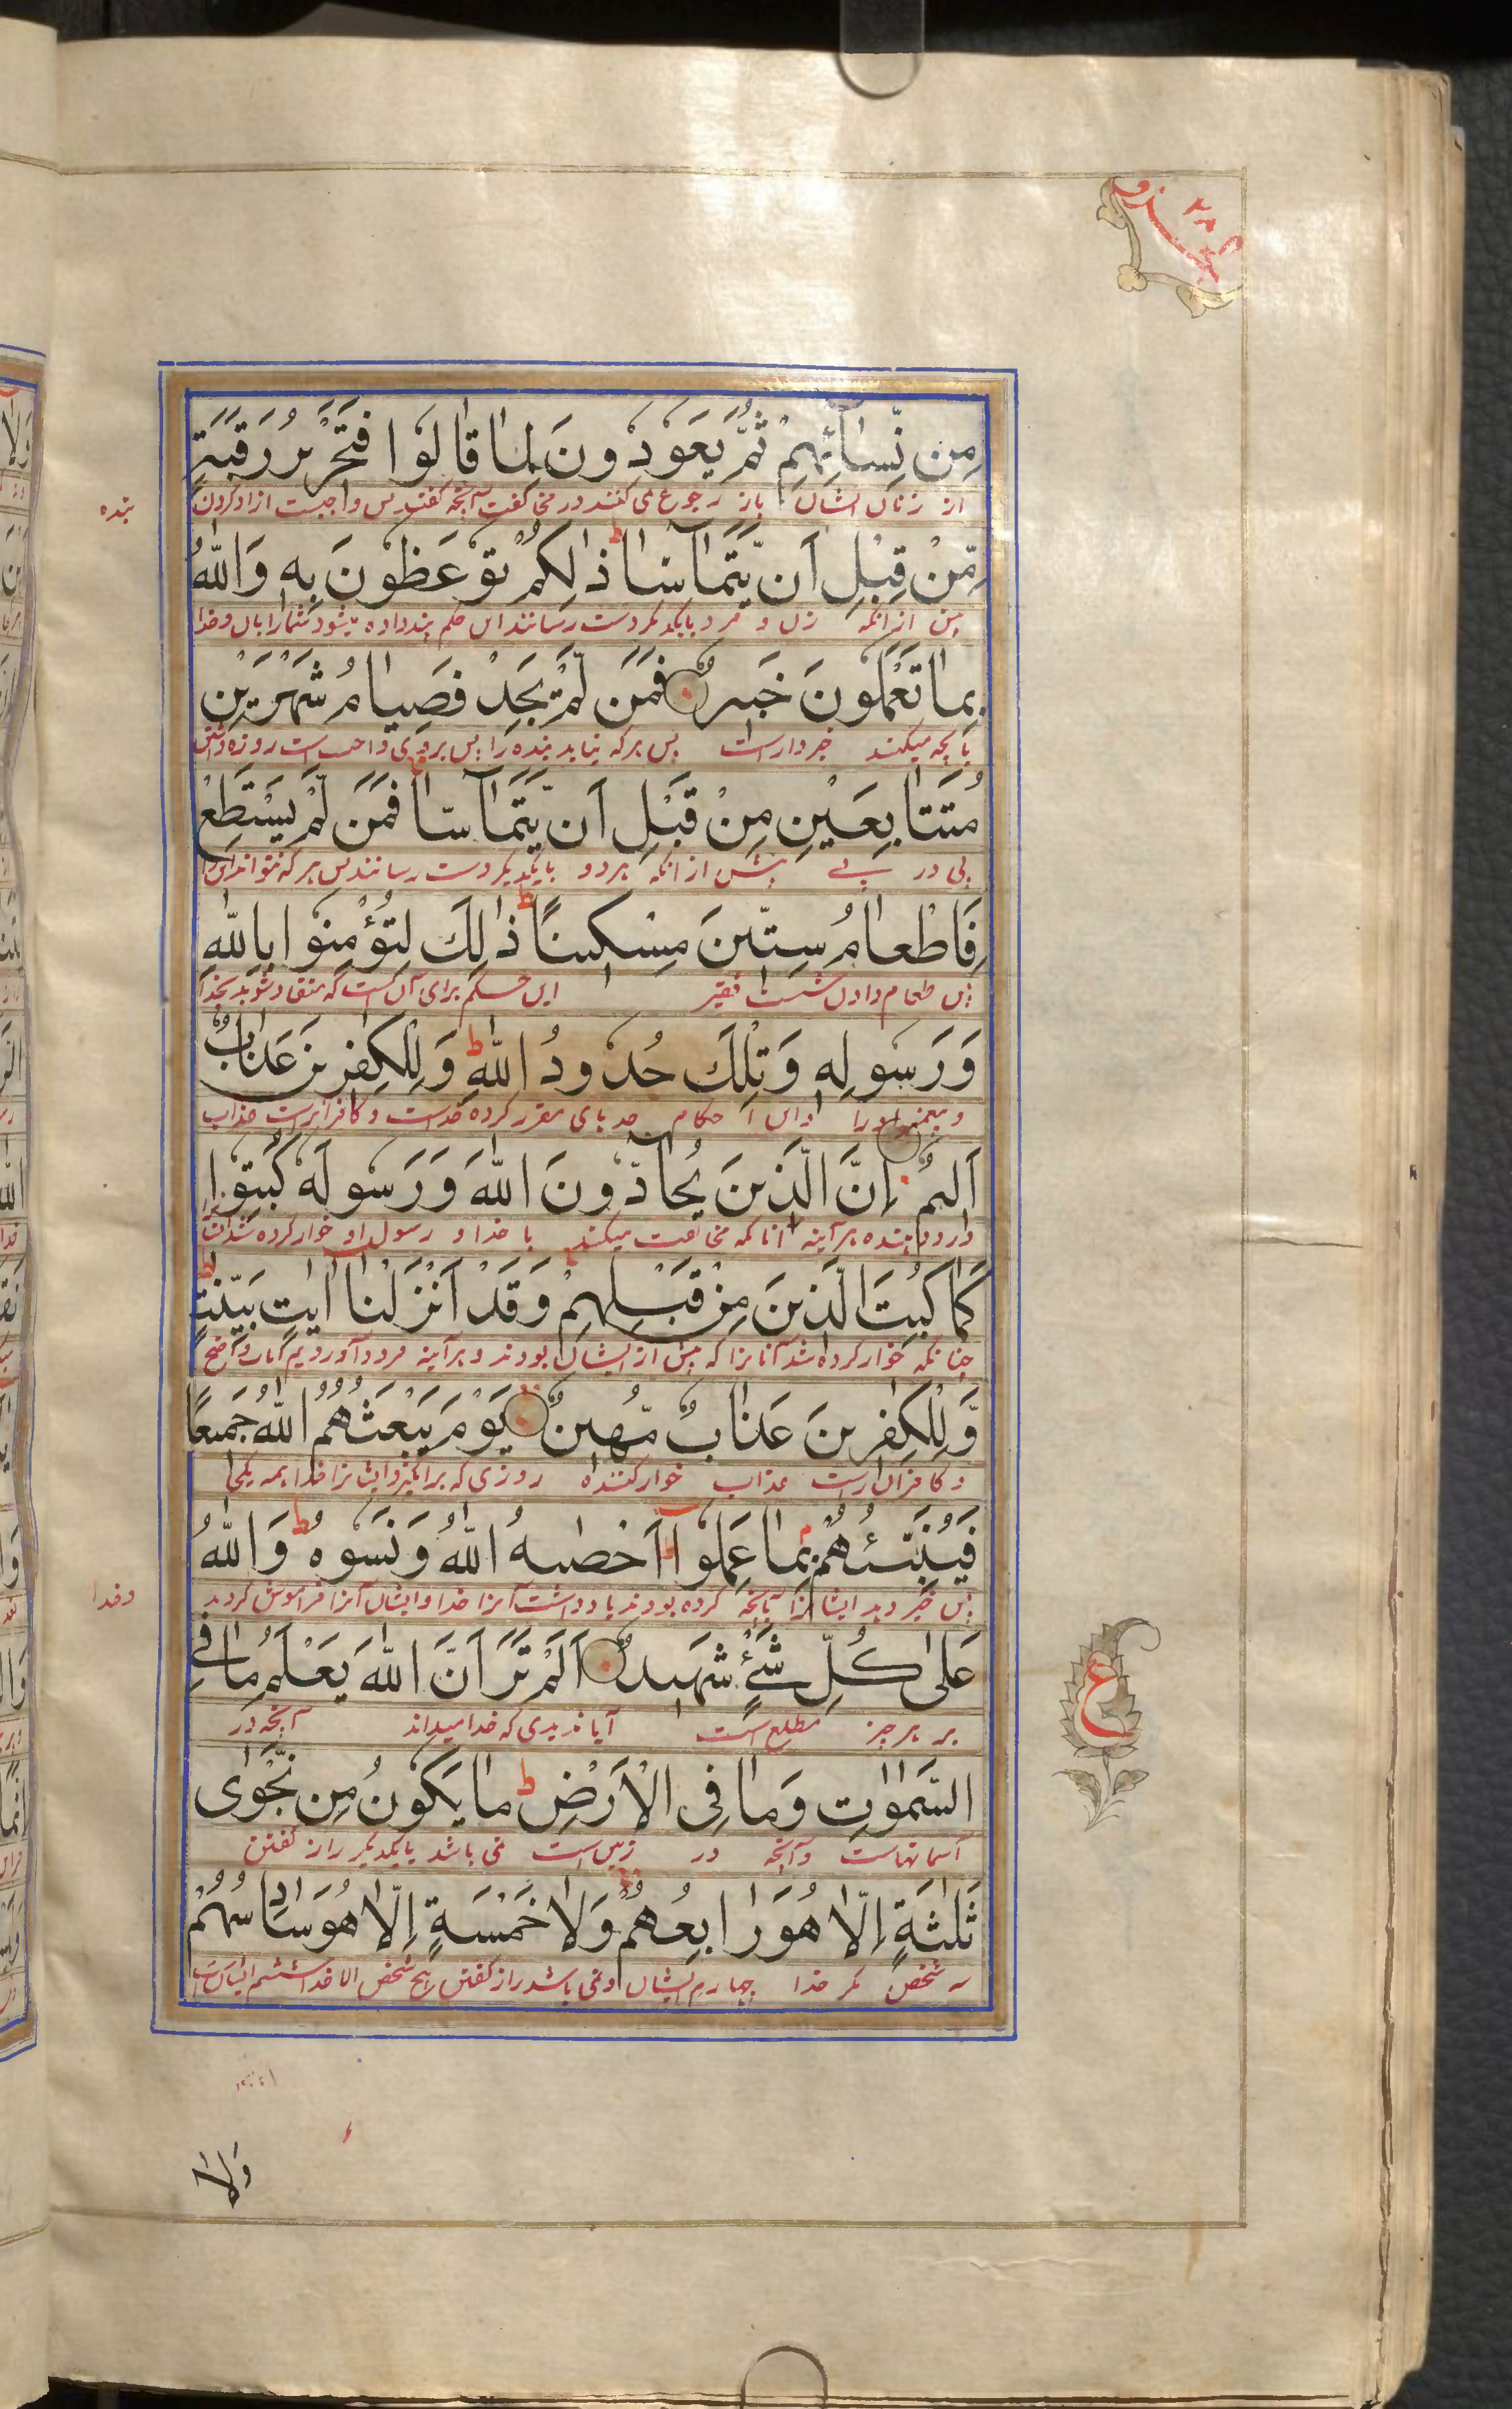 جزو ۲۸
مِن نِّسَآئِهِمْ ثُمَّ يَعُودُونَ لِمَا قَالُوا فَتَحْرِيرُ رَقَبَةٍ
از زنان ایشان باز رجوع می کنند در مخالفت آنچه گفتند پس واجبست ازاد کردن
بنده
مِّنْ قَبْلِ اَن يَّتَمَآسَّا ذٰلِكُمْ تُوْعَظُونَ بِهٖ وَاللّٰهُ
پیش ازانکه زن و مرد بایکدیکر دست رسانند این حکم پند داده میشود شمارا بان وخدا
بِمَا تَعْمَلُونَ خَبِيرٌ فَمَن لَّمْ يَجِدْ فَصِيَامُ شَهْرَيْنِ
بآنچه میکنید خبردارست پس هرکه نیابد بنده را پس بروی واجب است روزه داشتن
مُتَتَابِعَيْنِ مِنْ قَبْلِ اَن يَّتَمَآسَّا فَمَن لَّمْ يَسْتَطِعْ
پی در پے پیش ازانکه هر دو بایکدیکر دست رسانند پس هرکه نتواند این
فَاِطْعَامُ سِتِّينَ مِسْكِينًا ذٰلِكَ لِتُؤْمِنُوا بِاللّٰهِ
پس طعام دادن شصت فقیر این حکم برای آن است که منقاد شوید بخدا
وَرَسُولِهٖ وَتِلْكَ حُدُودُ اللّٰهِ وَلِلْكٰفِرِينَ عَذَابٌ
و پیغمبر اورا واین احکام حد های مقرر کرده خداست و کافرانراست عذاب
اَلِيمٌ اِنَّ الَّذِينَ يُحَآدُّونَ اللّٰهَ وَرَسُولَهٗ كُبِتُوا
درد دهنده هرآینه آنانکه مخالفت میکنند با خدا و رسول او خوار کرده شدند
كَمَا كُبِتَ الَّذِينَ مِنْ قَبْلِهِمْ وَقَدْ اَنْزَلْنَا اٰيٰتٍ بَيِّنٰتٍ
چنانکه خوار کرده شد آنانرا که پیش از ایشان بودند و هرآینه فرود آوردیم آیات واضح
وَّلِلْكٰفِرِينَ عَذَابٌ مُّهِينٌ يَوْمَ يَبْعَثُهُمُ اللّٰهُ جَمِيعًا
و کافران راست عذاب خوار کننده روزی که برانکیزد ایشانرا خدا همه یکجا
فَيُنَبِّئُهُمْ بِمَا عَمِلُوا اَحْصٰىهُ اللّٰهُ وَنَسُوهُ وَاللّٰهُ
پس خبر دهد ایشانرا بآنچه کرده بودند یاد داشت آنرا خدا وایشان آنرا فراموش کردند
وخدا
عَلٰى كُلِّ شَيْءٍ شَهِيدٌ اَلَمْ تَرَ اَنَّ اللّٰهَ يَعْلَمُ مَا فِي
بر هر چیز مطلع است آیا ندیدی که خدا میداند آنچه در
ع
السَّمٰوٰتِ وَمَا فِي الْاَرْضِ مَا يَكُونُ مِن نَّجْوٰى
آسمانهاست وآنچه در زمین است نمی باشد بایکدیکر راز کفتن
ثَلٰثَةٍ اِلَّا هُوَ رَابِعُهُمْ وَلَا خَمْسَةٍ اِلَّا هُوَ سَادِسُهُمْ
سه شخص مکر خدا چهارم ایشان ونمی باشد راز کفتن پنج شخص الا خدا ششم ایشانست
وَلَا